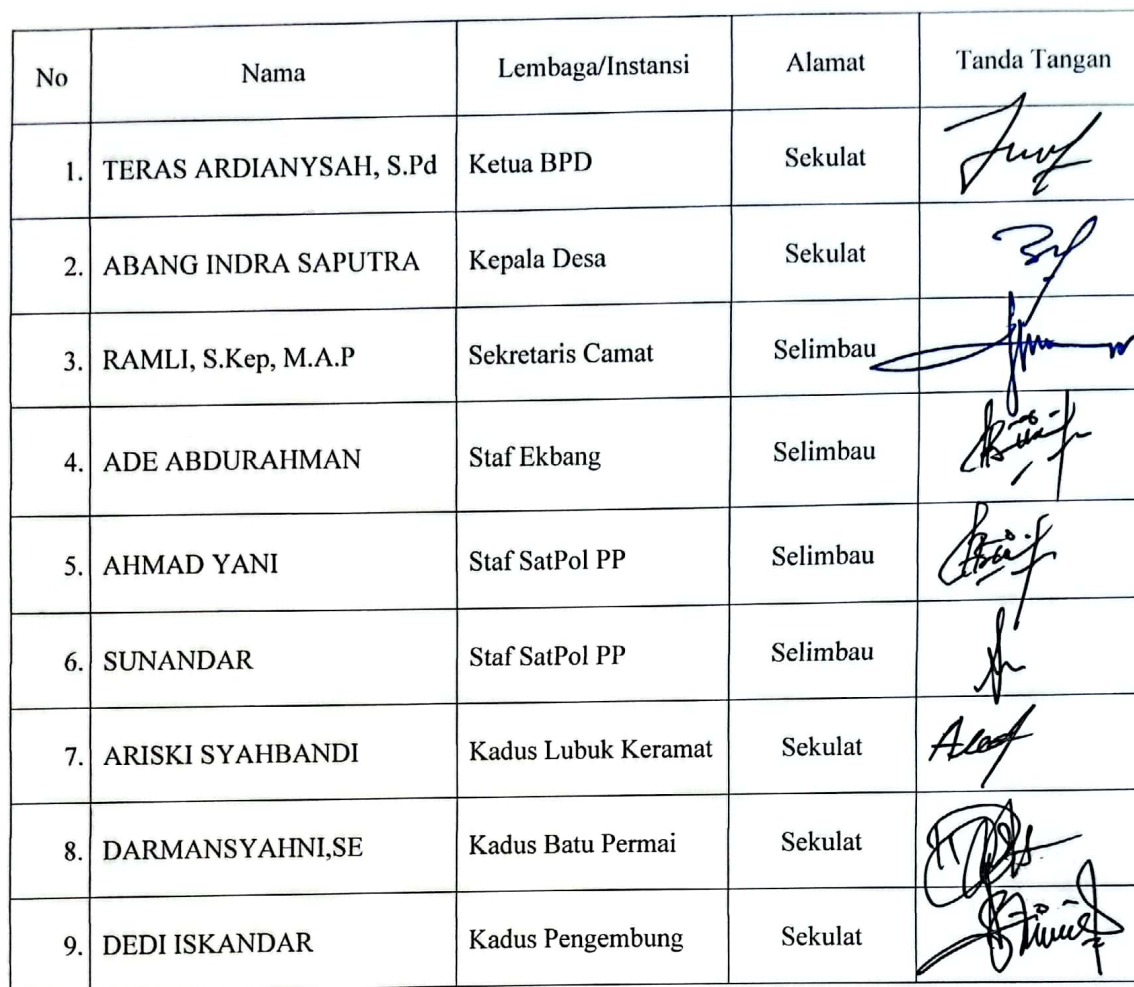 No Nama Lembaga/Instansi Alamat Tanda Tangan
1. TERAS ARDIANYSAH, S.Pd Ketua BPD Sekulat
2. ABANG INDRA SAPUTRA Kepala Desa Sekulat
3. RAMLI, S.Kep, M.A.P Sekretaris Camat Selimbau
4. ADE ABDURAHMAN Staf Ekbang Selimbau
5. AHMAD YANI Staf SatPol PP Selimbau
6. SUNANDAR Staf SatPol PP Selimbau
7. ARISKI SYAHBANDI Kadus Lubuk Keramat Sekulat
8. DARMANSYAHNI,SE Kadus Batu Permai Sekulat
9. DEDI ISKANDAR Kadus Pengembung Sekulat